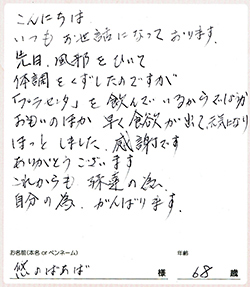 こんにちは
いつもお世話になっております。
先日、風邪をひいて
体調をくずしたのですが
「プラセンタ」を飲んでいるからでしょうか
おもいのほか 早く食欲が出て元気になり
ほっとしました。感謝です
ありがとうございます
これからも 孫達の為、
自分の為、がんばります。
お名前(本名 or ペンネーム) 年齢
悠のばあば 様 68 歳